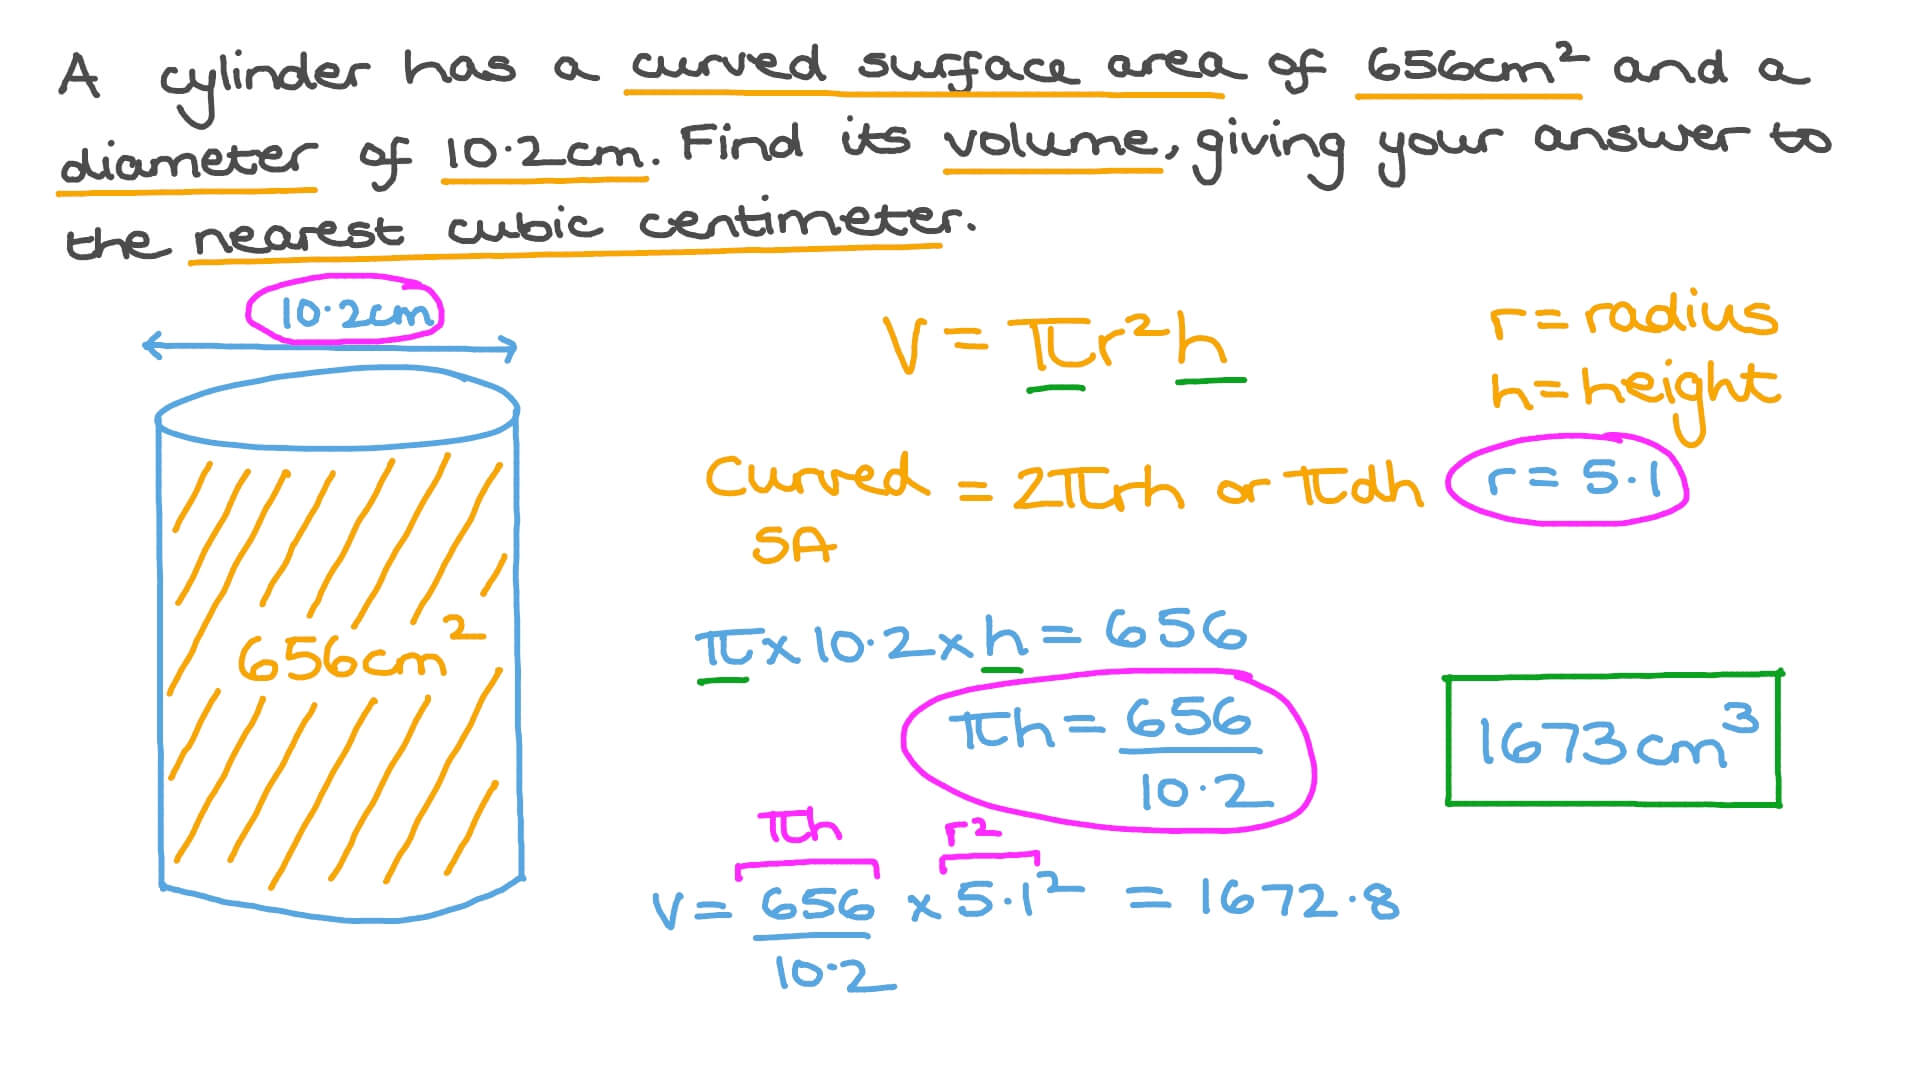 A cylinder has a curved surface area of 656cm² and a
diameter of 10.2cm. Find its volume, giving your answer to
the nearest cubic centimeter.
10.2cm
656cm²
V = πr²h
r = radius
h = height
Curved = 2πrh or πdh
SA
r = 5.1
π x 10.2 x h = 656
πh = 656
10.2
1673cm³
πh r²
V = 656 x 5.1² = 1672.8
10.2